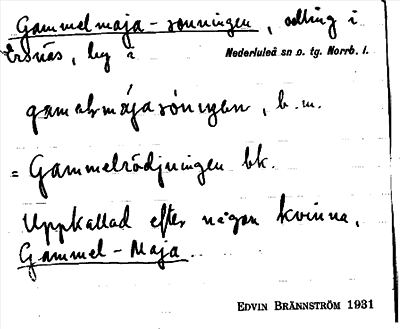 Gammelmaja-sonningen, odling i
Ersnäs, by i Nederluleå sn o. tg. Norrb. l.
gamalmájasóningen, b. m.
= Gammelrödjningen bk.
Uppkallad efter någon kvinna,
Gammel-Maja.
EDVIN BRÄNNSTRÖM 1931